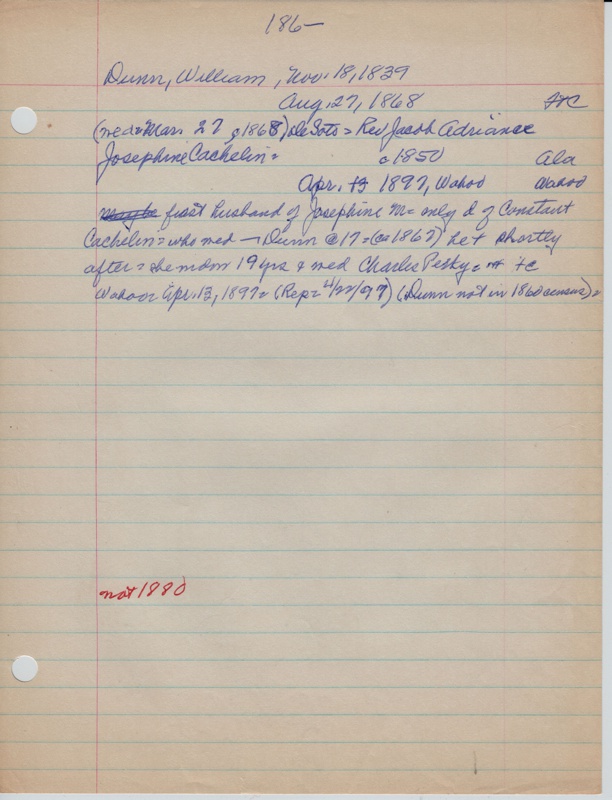 186-
Dunn, William, Nov. 18, 1839
Aug. 27, 1868 FtC
(med = Mar. 27, 1868) DeSoto = Rev Jacob Adriance
Josephine Cachelin = c 1850 Ala
Apr. 13 1897, Wahoo Wahoo
Maybe first husband of Josephine M = only d of Constant
Cachelin = who med - Dunn @ 17 = (ca 1867) he + shortly
after = she mom 19 yrs & med Charles Pesky = + c
Wahoo = Apr. 13, 1897 = (Rep = 4/22/97) (Dunn not in 1860 census) =
not 1880